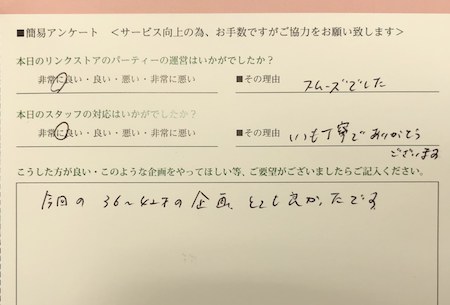 ■簡易アンケート　＜サービス向上の為、お手数ですがご協力をお願い致します＞
本日のリンクストアのパーティーの運営はいかがでしたか？
非常に良い・良い・悪い・非常に悪い　■その理由　スムーズでした
本日のスタッフの対応はいかがでしたか？
非常に良い・良い・悪い・非常に悪い　■その理由　いつも丁寧でありがとう
ございます
こうした方が良い・このような企画をやってほしい等、ご要望がございましたらご記入ください。
今回の 36～42才の企画、とても良かったです